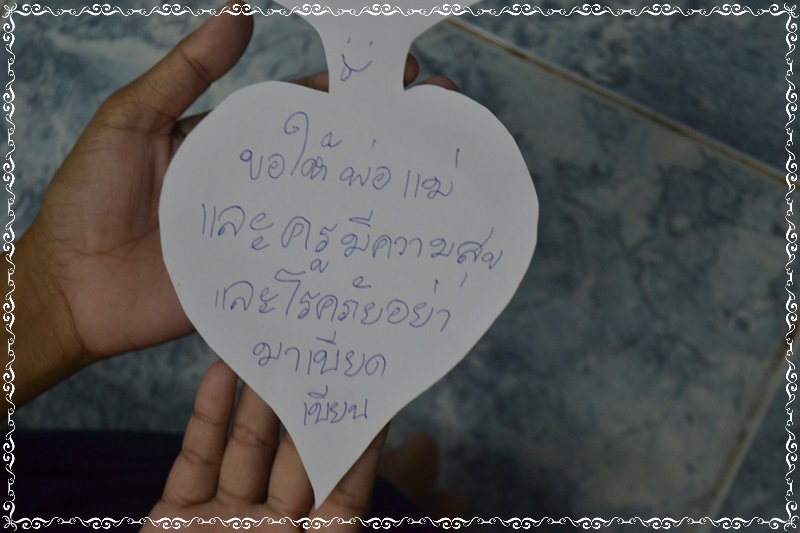 ขอให้ พ่อ แม่
และ ครู มีความสุข
และโรคภัยอย่า
มาเบียด
เบียน